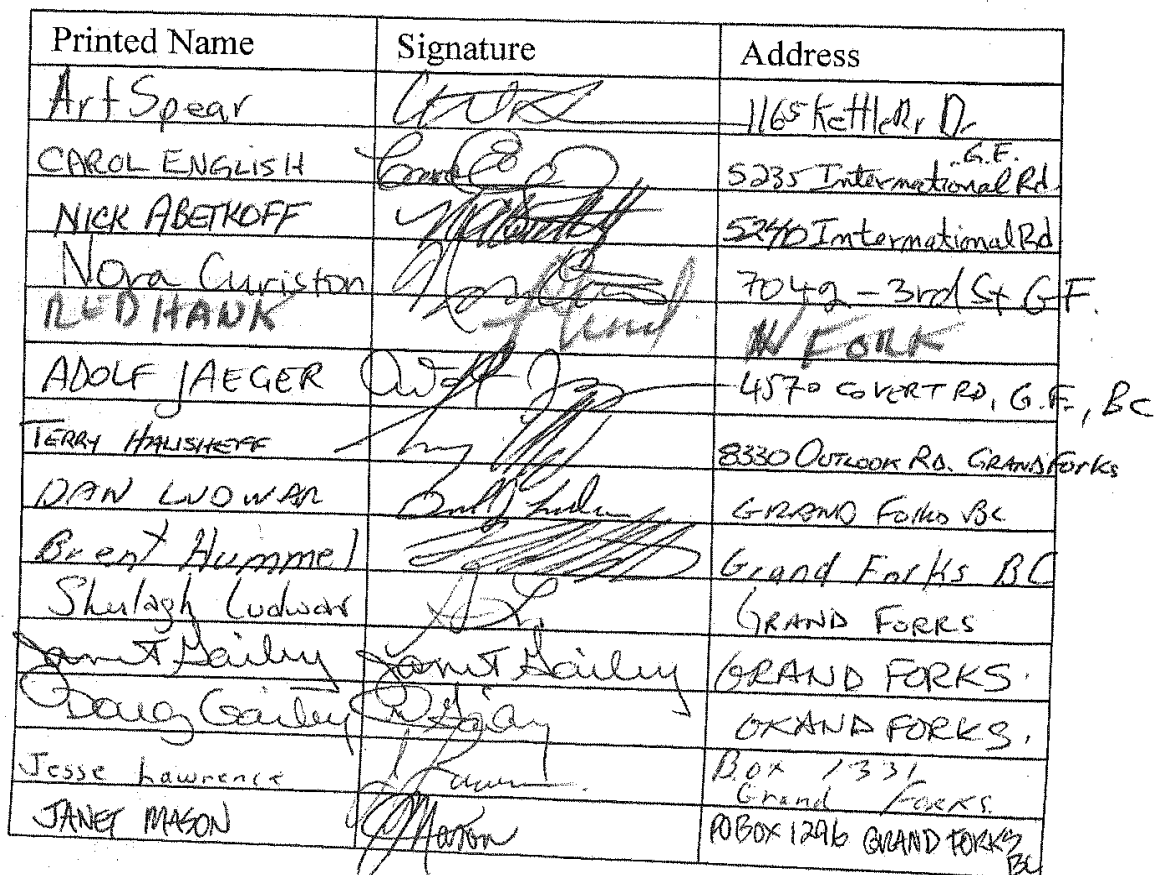 Printed Name Signature Address
Art Spear 1165 Kettle R. Dr
CAROL ENGLISH 5235 International Rd. G.F.
NICK ABETKOFF 5240 International Rd
Nora Curiston 7042 - 3rd St G.F.
RUD HANK N FORK
ADOLF JAEGER 4570 COVERT RD, G.F., BC
TERRY HALISHEFF 8330 OUTLOOK RD. GRAND FORKS
DAN LUDWAR GRAND FORKS BC
Brent Hummel Grand Forks BC
Shulagh Ludwar GRAND FORKS
Janet Gailey Janet Gailey GRAND FORKS.
Doug Gailey D Gailey GRAND FORKS.
Jesse Lawrence Box 1331 Grand Forks.
JANET MASON JMason PO BOX 1296 GRAND FORKS BC